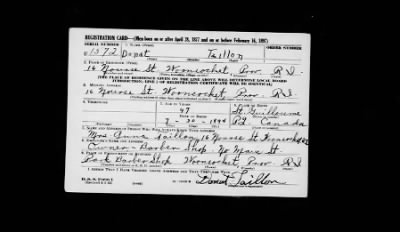 REGISTRATION CARD—(Men born on or after April 28, 1877 and on or before February 16, 1897)
SERIAL NUMBER 1. NAME (Print) ORDER NUMBER
U 1572 Donat Taillon
2. PLACE OF RESIDENCE (Print)
16 Nourse St Woonsocket Prov. R.I.
[THE PLACE OF RESIDENCE GIVEN ON THE LINE ABOVE WILL DETERMINE LOCAL BOARD
JURISDICTION; LINE 2 OF REGISTRATION CERTIFICATE WILL BE IDENTICAL]
3. MAILING ADDRESS
16 Nourse St Woonsocket Prov. R.I.
4. TELEPHONE 5. AGE IN YEARS 6. PLACE OF BIRTH
47 St Guillaume
DATE OF BIRTH
1894 P.Q. Canada
7. NAME AND ADDRESS OF PERSON WHO WILL ALWAYS KNOW YOUR ADDRESS
Mrs Anna Taillon 16 Nourse St Woonsocket
8. EMPLOYER'S NAME AND ADDRESS
Owner - Barber Shop. No Main St.
9. PLACE OF EMPLOYMENT OR BUSINESS
Park Barber Shop Woonsocket Prov R.I.
I AFFIRM THAT I HAVE VERIFIED ABOVE ANSWERS AND THAT THEY ARE TRUE.
D.S.S. Form 1
Donat Taillon